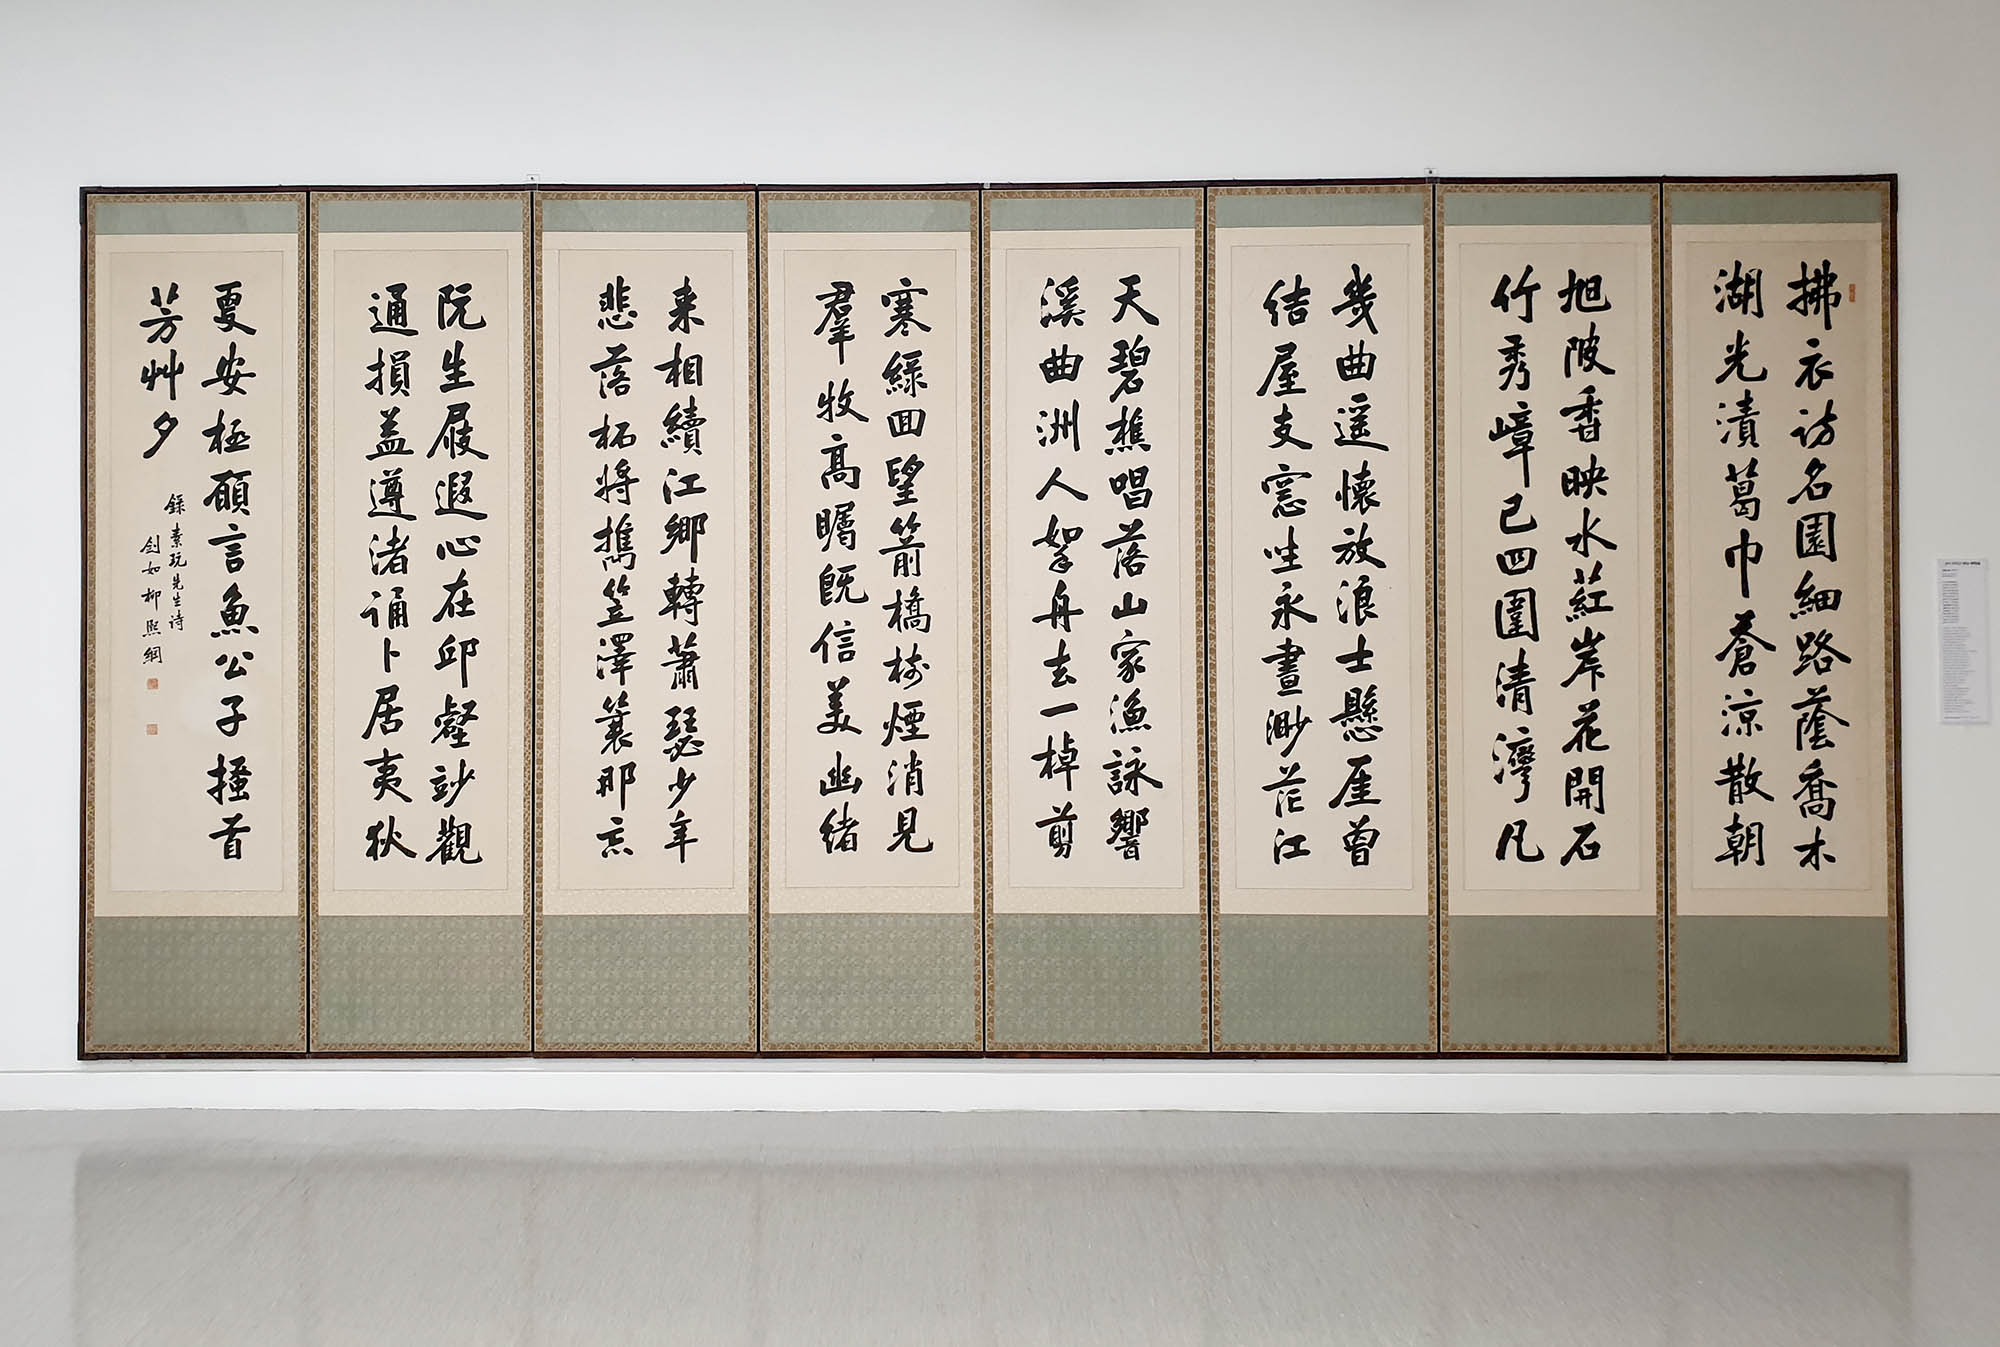 拂衣訪名園細路蔭喬木
湖光漬葛巾蒼涼散朝
旭陂香映水葒岸花開石
竹秀嶂已四圍清灣凡
幾曲遥懷放浪士懸厓曾
结屋支窓坐永晝渺茫江
天碧樵唱落山家漁詠響
溪曲洲人拏舟去一棹剪
寒緑回望箭橋村煙消見
羣牧高矚既信美幽緒
来相續江鄉轉蕭瑟少年
悲落柘将攜笠澤蓑那忘
阮生屐遐心在邱壑竗觀
通損益遵渚诵卜居夷犹
夏安極願言魚公子搔首
芳艸夕
録素玩先生诗
劍如柳熙綱